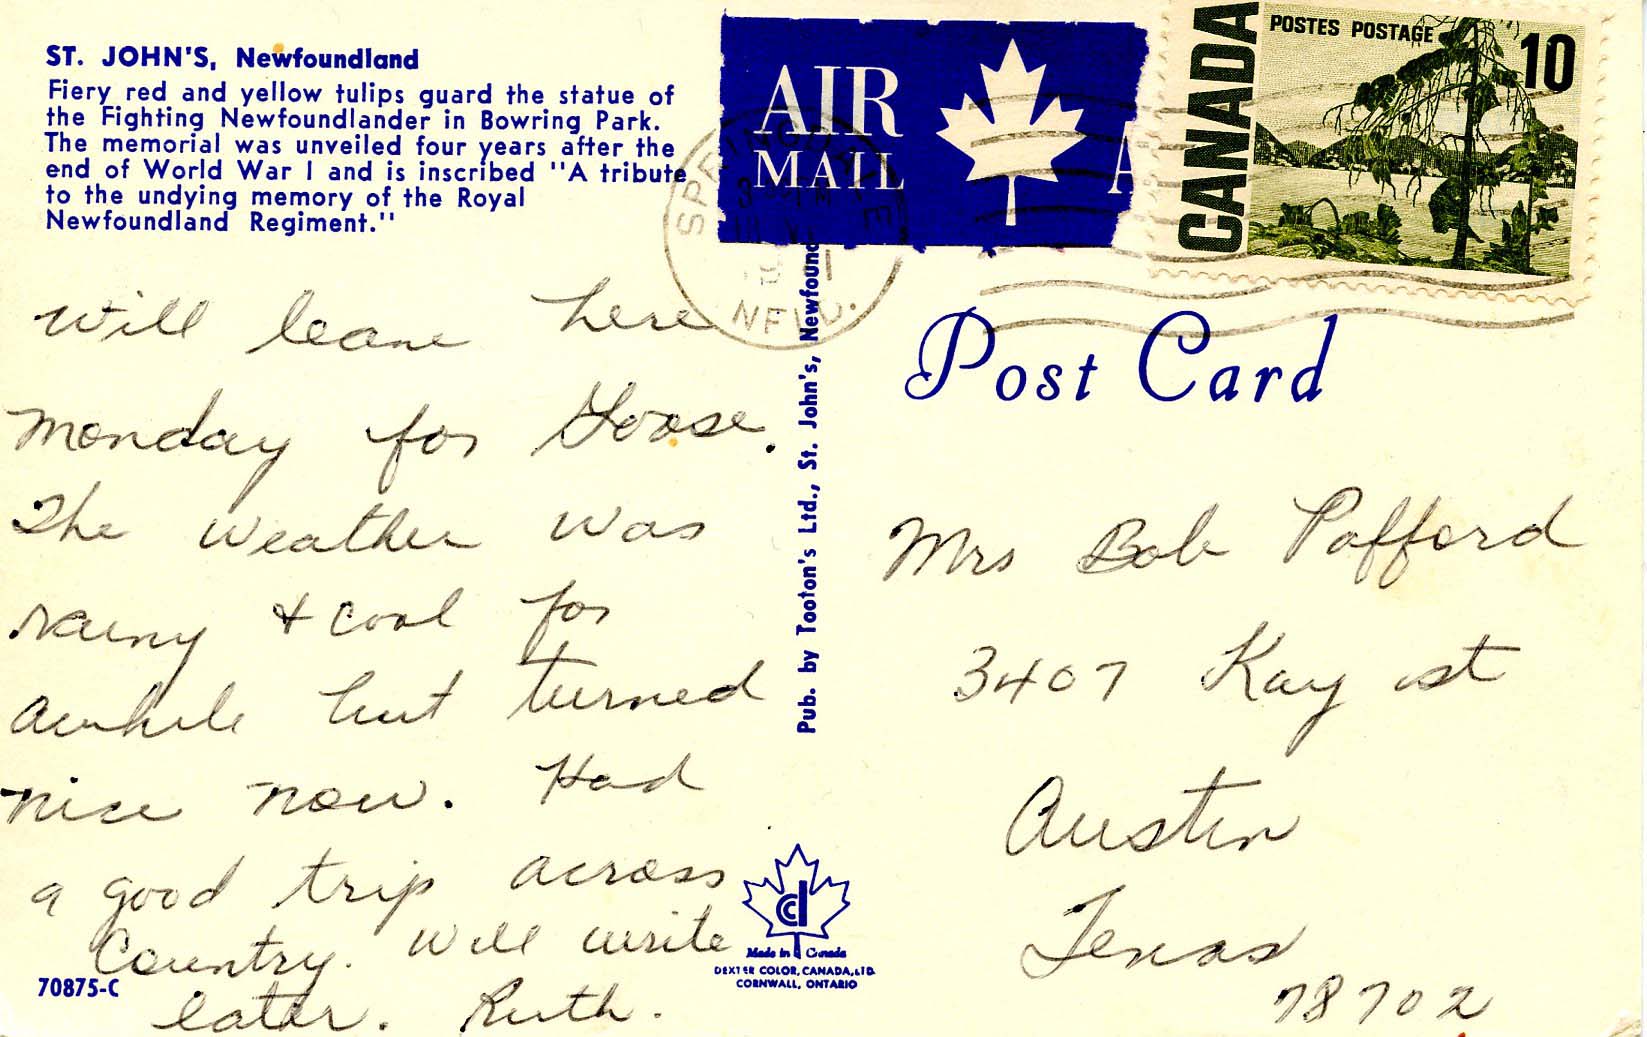 ST. JOHN'S, Newfoundland
Fiery red and yellow tulips guard the statue of
the Fighting Newfoundlander in Bowring Park.
The memorial was unveiled four years after the
end of World War I and is inscribed "A tribute
to the undying memory of the Royal
Newfoundland Regiment."
AIR
MAIL
A
CANADA
POSTES POSTAGE
10
SPRINGDALE
NFLD.
will leave here
Monday for Goose.
The weather was
rainy & cool for
awhile but turned
nice now. Had
a good trip across
Country. Will write
later. Ruth.
70875-C
Pub. by Tooton's Ltd., St. John's, Newfound
Made in Canada
DEXTER COLOR, CANADA, LTD.
CORNWALL, ONTARIO
Post Card
Mrs Bob Pafford
3407 Kay st
Austin
Texas
78702